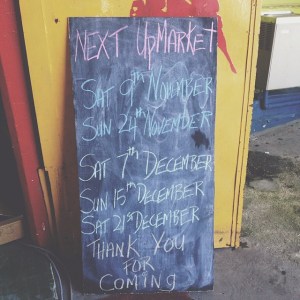 NEXT UPMARKET
SAT 9th NOVEMBER
SUN 24th NOVEMBER
SAT 7th DECEMBER
SUN 15th DECEMBER
SAT 21st DECEMBER
THANK YOU
FOR
COMING